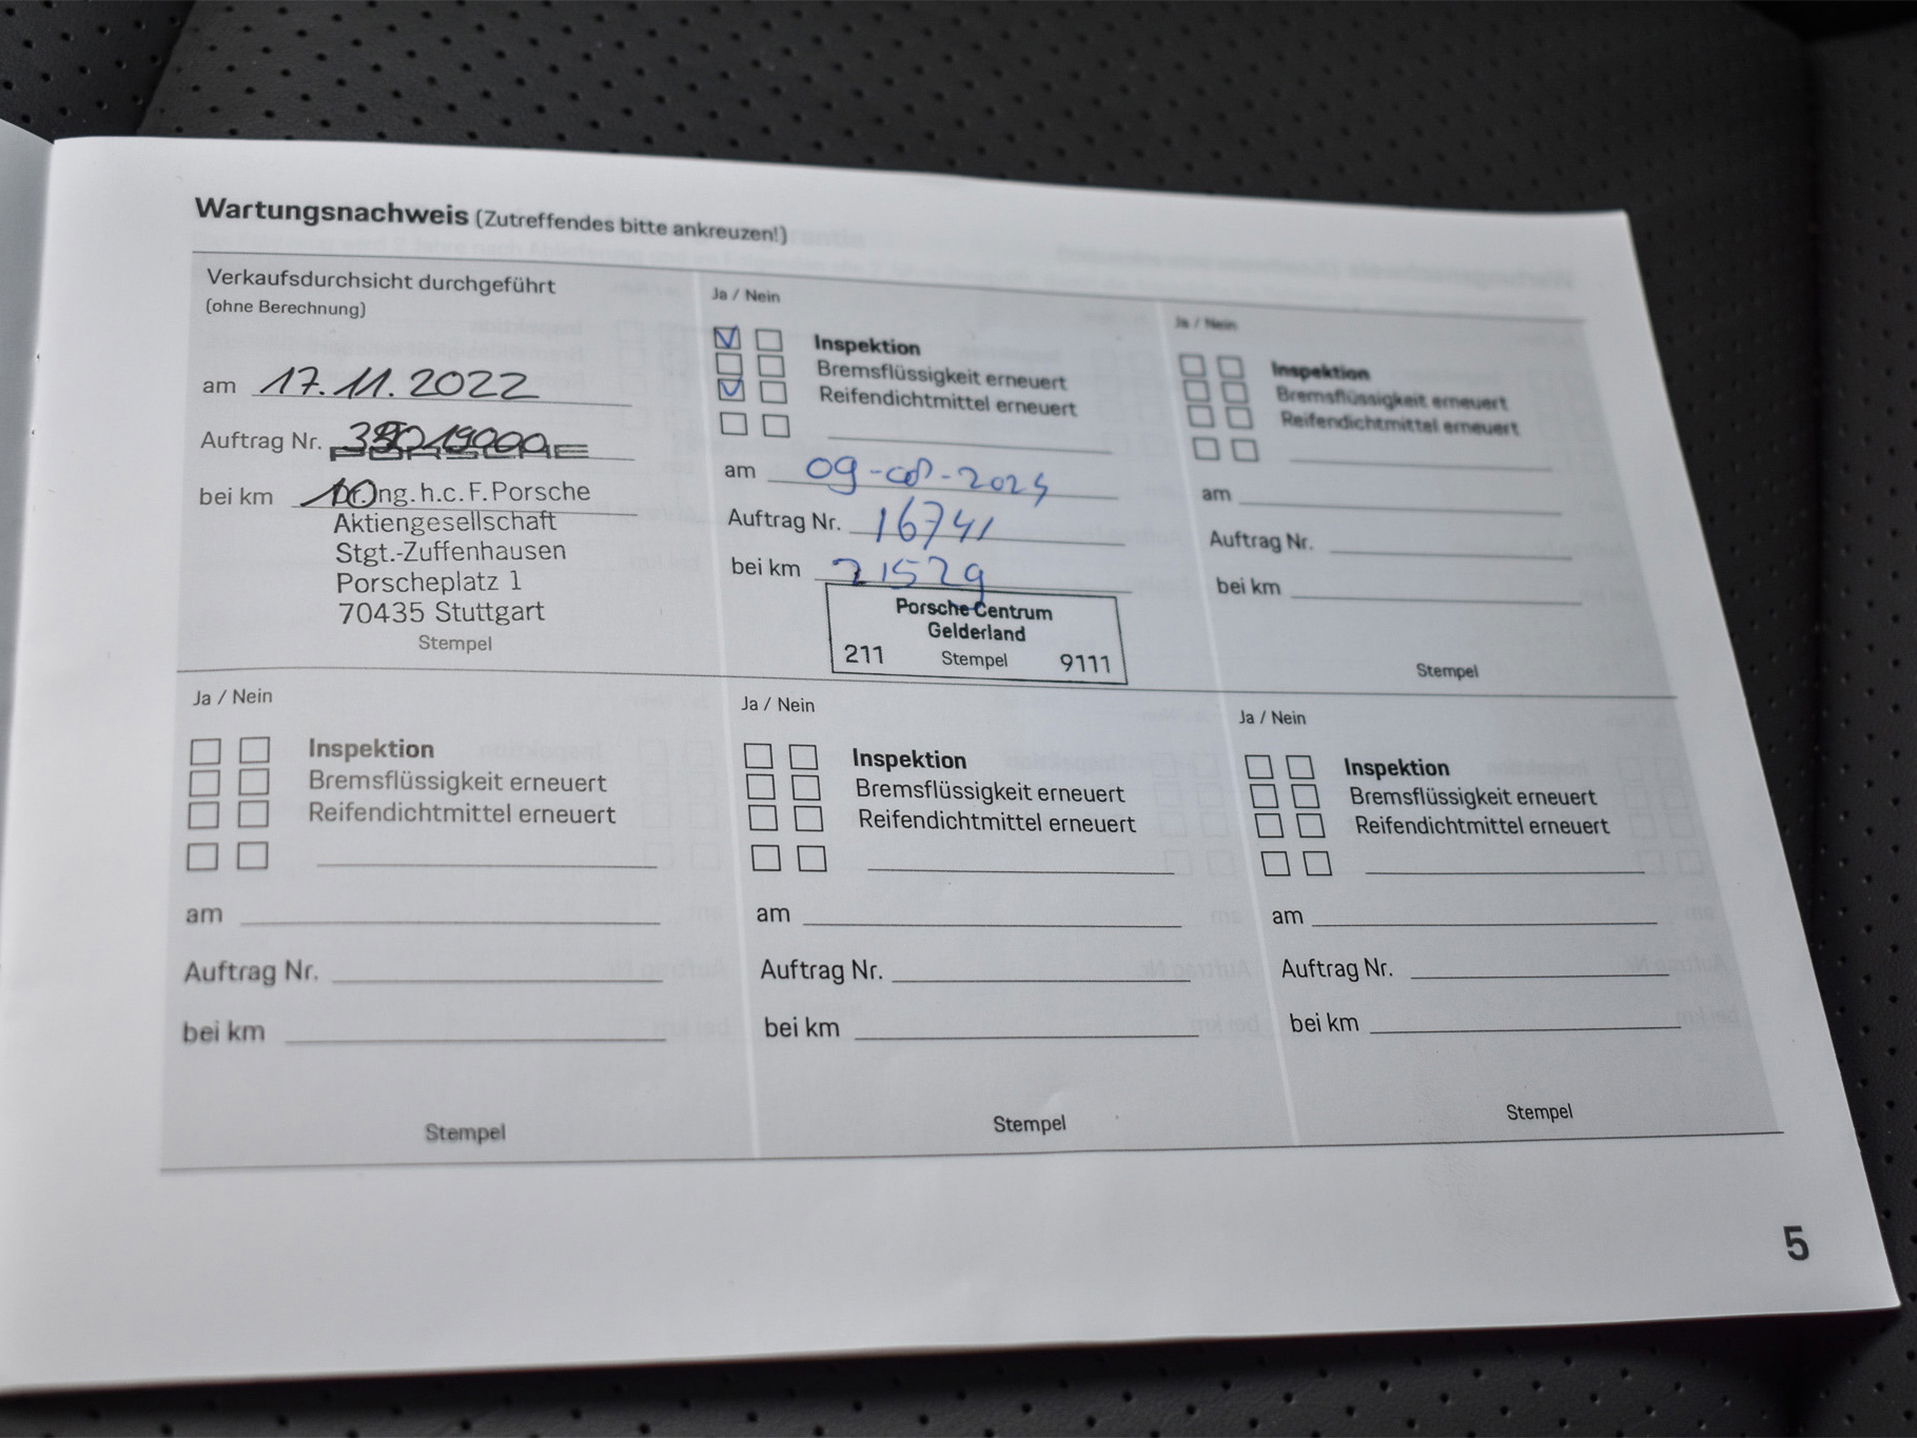 Wartungsnachweis (Zutreffendes bitte ankreuzen!)
Verkaufsdurchsicht durchgeführt
(ohne Berechnung)
am 17.11.2022
Auftrag Nr.
bei km 10
Dr. Ing. h.c. F. Porsche
Aktiengesellschaft
Stgt.-Zuffenhausen
Porscheplatz 1
70435 Stuttgart
Stempel
Ja / Nein
Inspektion
Bremsflüssigkeit erneuert
Reifendichtmittel erneuert
am 09-08-2024
Auftrag Nr. 16741
bei km 21529
Porsche Centrum
Gelderland
211 Stempel 9111
Ja / Nein
Inspektion
Bremsflüssigkeit erneuert
Reifendichtmittel erneuert
am
Auftrag Nr.
bei km
Stempel
Ja / Nein
Inspektion
Bremsflüssigkeit erneuert
Reifendichtmittel erneuert
am
Auftrag Nr.
bei km
Stempel
Ja / Nein
Inspektion
Bremsflüssigkeit erneuert
Reifendichtmittel erneuert
am
Auftrag Nr.
bei km
Stempel
Ja / Nein
Inspektion
Bremsflüssigkeit erneuert
Reifendichtmittel erneuert
am
Auftrag Nr.
bei km
Stempel
5